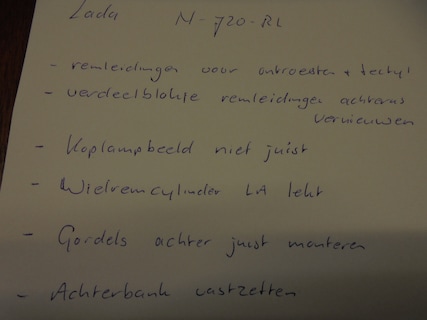 Lada N-720-RL
- remleidingen voor ontroesten + tectyl
- verdeelblokje remleidingen achteras
vernieuwen
- Koplampbeeld niet juist
- Wielremcylinder LA lekt
- Gordels achter juist monteren
- Achterbank vastzetten